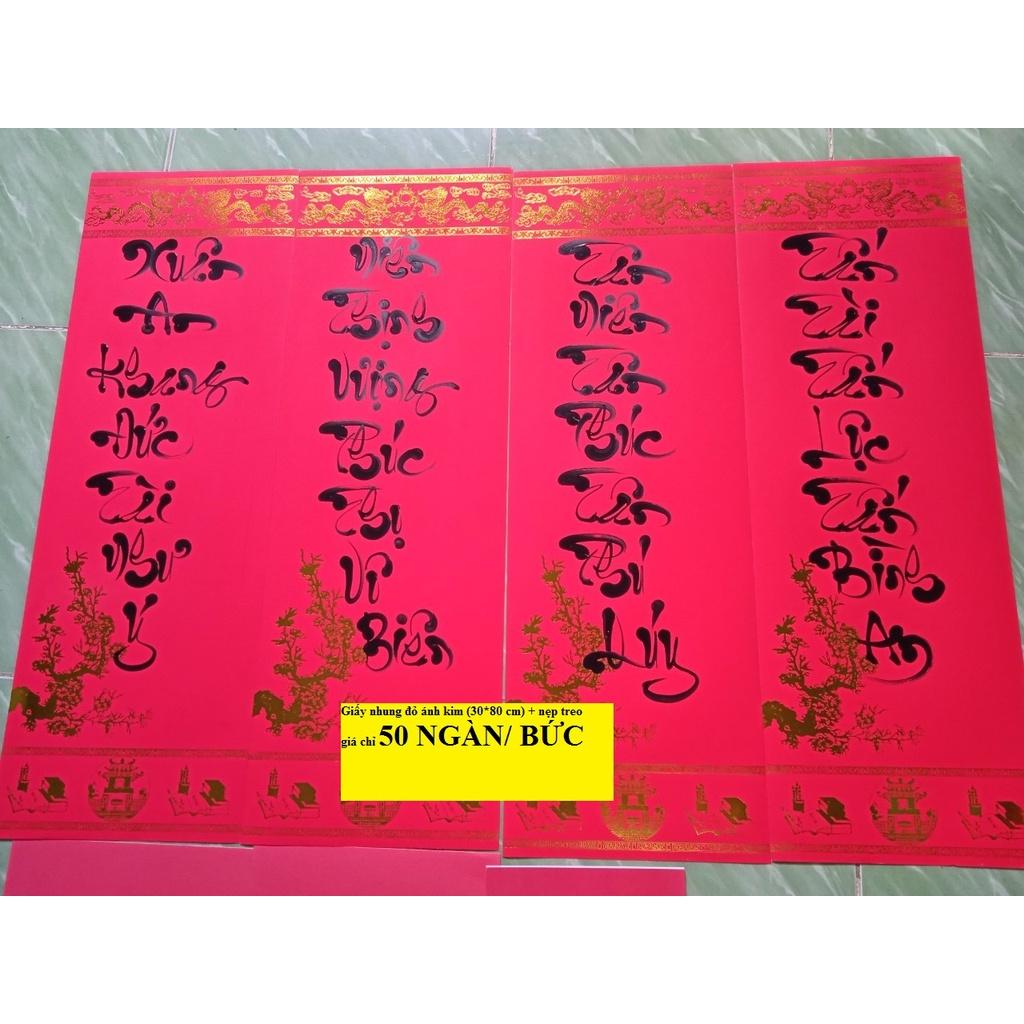 Xuân An Khang Đức Tài Như Ý
Niên Thịnh Vượng Phúc Thọ Vô Biên
Tân Niên Tân Phúc Tân Phú Quý
Tấn Tài Tấn Lộc Tấn Bình An
Giấy nhung đỏ ánh kim (30*80 cm) + nẹp treo
giá chỉ 50 NGÀN/ BỨC